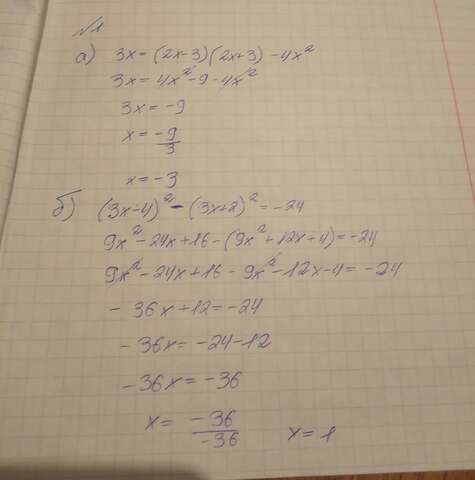 №1
а) 3x = (2x-3)(2x+3) - 4x²
3x = 4x² - 9 - 4x²
3x = -9
x = -9/3
x = -3
б) (3x-4)² - (3x+2)² = -24
9x² - 24x + 16 - (9x² + 12x + 4) = -24
9x² - 24x + 16 - 9x² - 12x - 4 = -24
- 36x + 12 = -24
- 36x = -24 - 12
- 36x = -36
x = -36/-36 x = 1